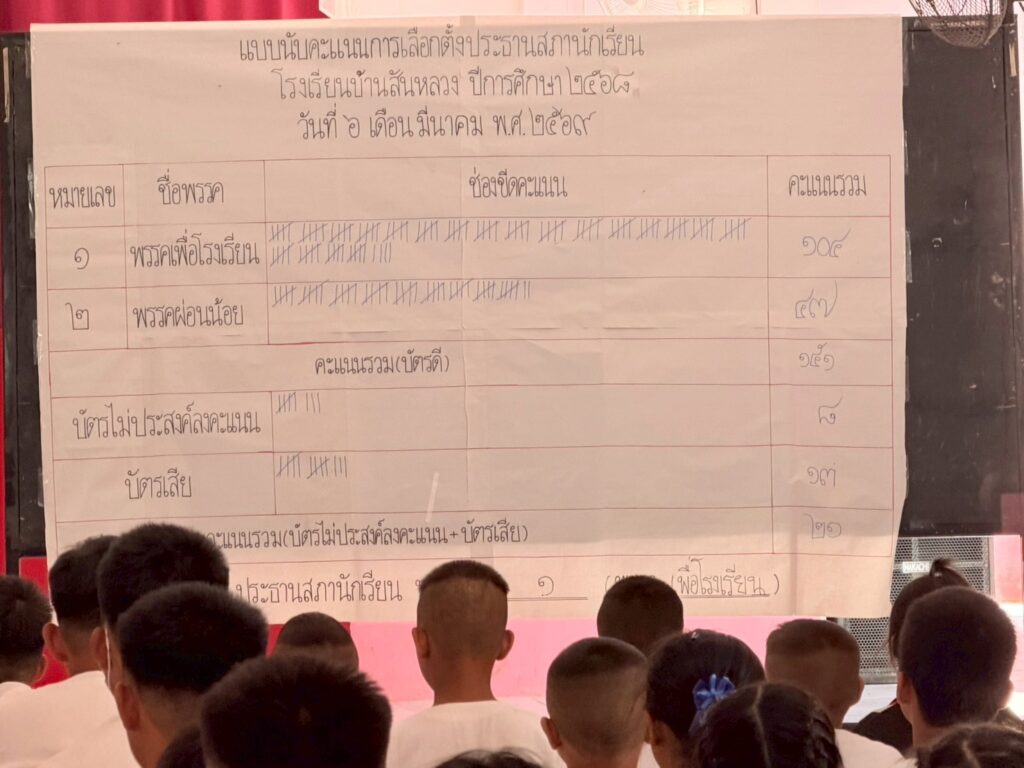 แบบนับคะแนนการเลือกตั้งประธานสภานักเรียน
โรงเรียนบ้านสันหลวง ปีการศึกษา ๒๕๖๘
วันที่ ๖ เดือน มีนาคม พ.ศ. ๒๕๖๙
หมายเลข ชื่อพรรค ช่องขีดคะแนน คะแนนรวม
๑ พรรคเพื่อโรงเรียน ๑๐๔
๒ พรรคผ่อนน้อย ๔๗
คะแนนรวม(บัตรดี) ๑๕๑
บัตรไม่ประสงค์ลงคะแนน ๘
บัตรเสีย ๑๓
คะแนนรวม(บัตรไม่ประสงค์ลงคะแนน + บัตรเสีย) ๒๑
ประธานสภานักเรียน ๑ เพื่อโรงเรียน)